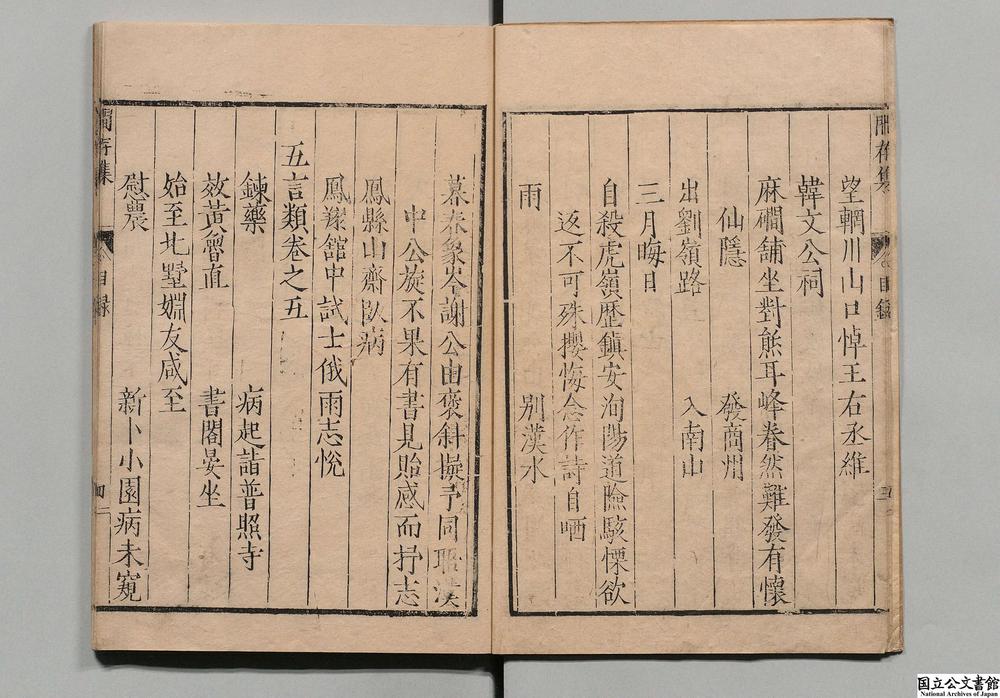 望輞川山口悼王右丞維
韓文公祠
麻磵舖坐對熊耳峰眷然難發有懷
仙隱 發商州
出劉嶺路 入南山
三月晦日
自殺虎嶺歷鎮安洵陽道險駭慄欲
返不可殊攖悔念作詩自哂
雨 別漢水
暮春象岑謝公由褒斜擬予同
中公旋不果有書見貽感而抒志
鳳縣山齋臥病
鳳翔館中試士俄雨志悅
五言類卷之五
鍊藥 病起詣普照寺
效黃魯直 書閣晏坐
始至北墅婣友咸至
慰農 新卜小園病未窺
閒存集
目録
国立公文書館
National Archives of Japan